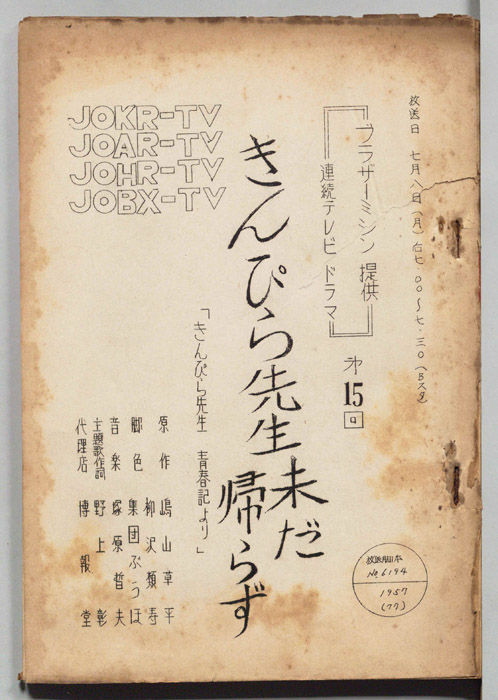 放送日 七月八日(月) 后七.〇〇〜七.三〇(Bスタ)
ブラザーミシン 提供
連続テレビ ドラマ
才15回
きんぴら先生未だ
帰らず
「きんぴら先生 青春記より」
原作 嶋山草平
柳沢類寿
脚色 集団ぶうほ
音楽 塚原哲夫
主題歌作詞 野上彰
代理店 博報堂
JOKR-TV
JOAR-TV
JOHR-TV
JOBX-TV
放送用台本
No.6194
1957
(77)